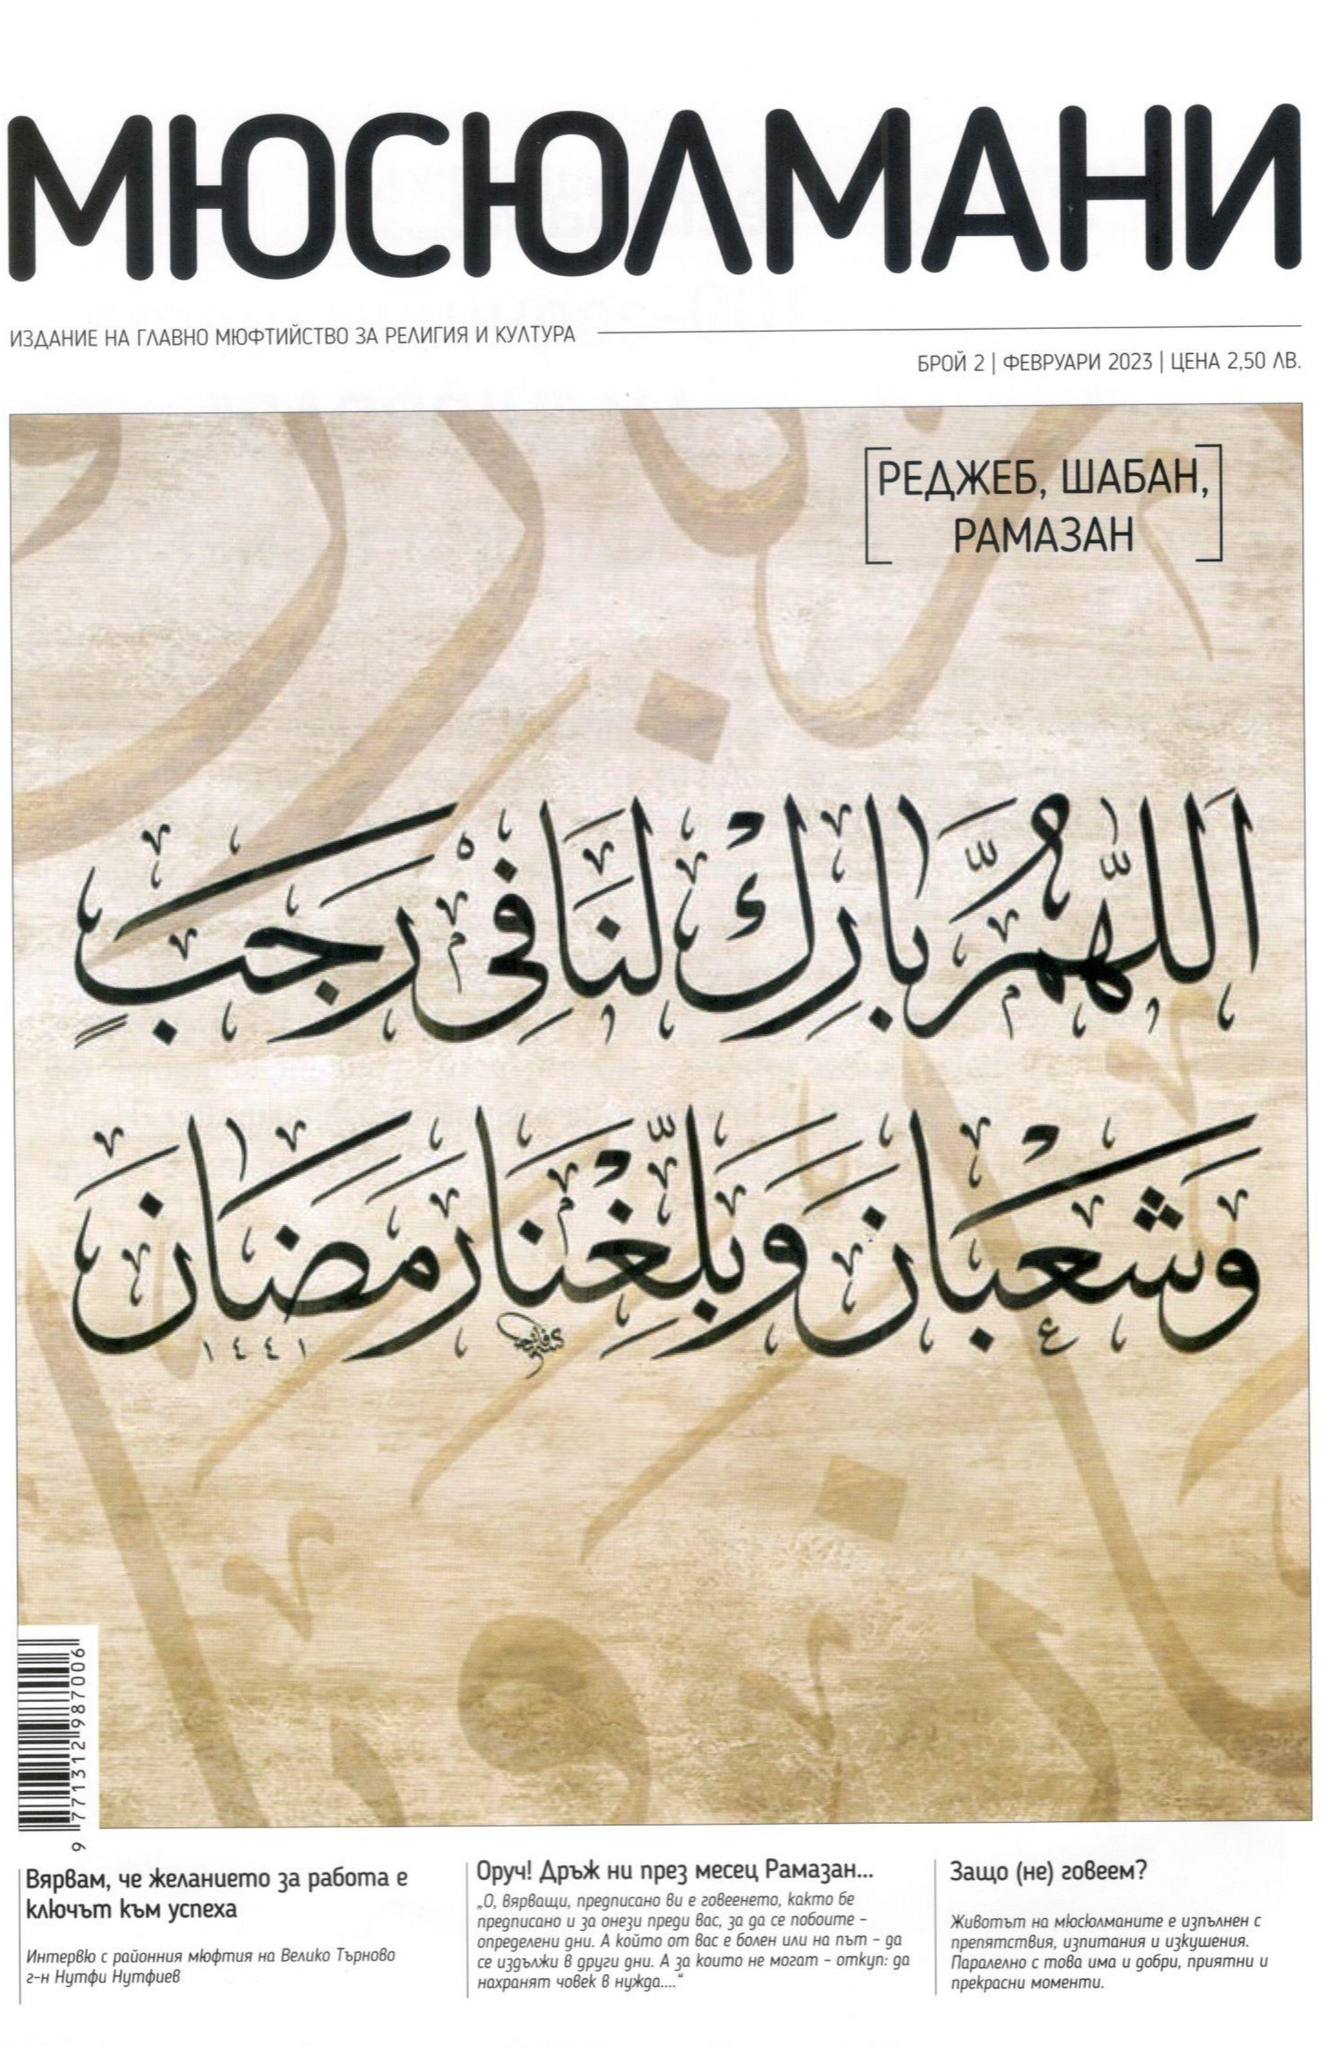 МЮСЮЛМАНИ
ИЗДАНИЕ НА ГЛАВНО МЮФТИЙСТВО ЗА РЕЛИГИЯ И КУЛТУРА
БРОЙ 2 | ФЕВРУАРИ 2023 | ЦЕНА 2,50 ЛВ.
РЕДЖЕБ, ШАБАН,
РАМАЗАН
اَللّٰهُمَّ بَارِكْ لَنَا فِي رَجَبٍ
وَشَعْبَانَ وَبَلِّغْنَا رَمَضَانَ
١٤٤١
9 771312 987006
Вярвам, че желанието за работа е
ключът към успеха
Интервю с районния мюфтия на Велико Търново
г-н Нутфи Нутфиев
Оруч! Дръж ни през месец Рамазан...
„О, вярващи, предписано ви е говеенето, както бе
предписано и за онези преди вас, за да се побоите –
определени дни. А който от вас е болен или на път – да
се издължи в други дни. А за които не могат – откуп: да
нахранят човек в нужда....“
Защо (не) говеем?
Животът на мюсюлманите е изпълнен с
препятствия, изпитания и изкушения.
Паралелно с това има и добри, приятни и
прекрасни моменти.